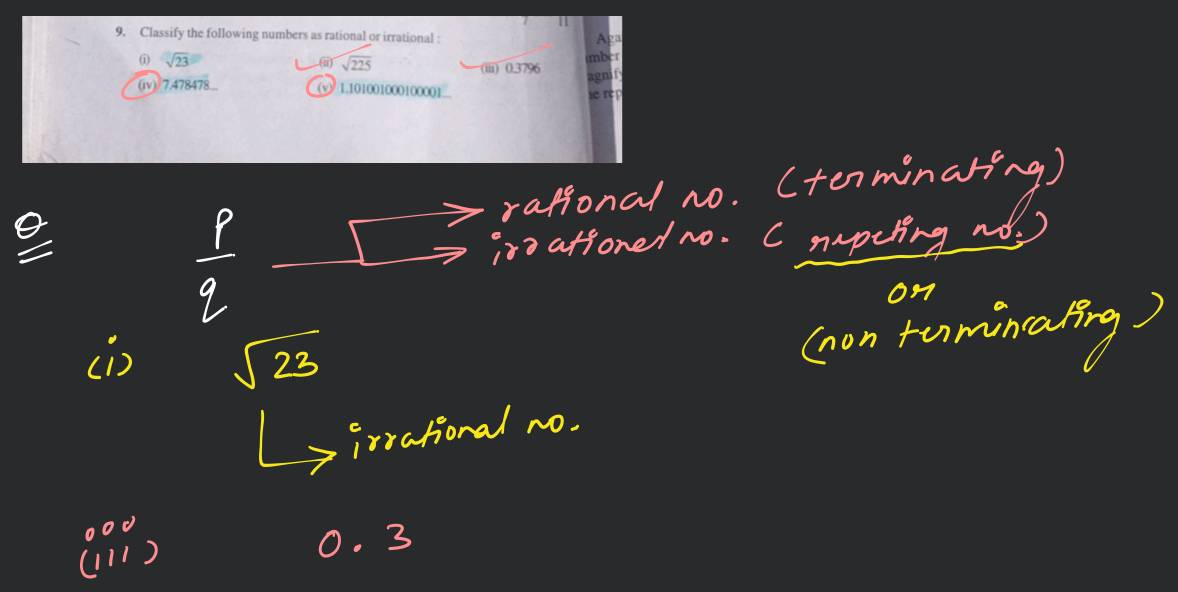 7 11
9. Classify the following numbers as rational or irrational :
(i) √23 (ii) √225 (iii) 0.3796
(iv) 7.478478... (v) 1.101001000100001...
Aga
mber
agnify
he rep
Q
p
q
rational no. (terminating)
irrational no. (
no.)
or
(non terminating)
(i) √23
irrational no.
(iii) 0.3